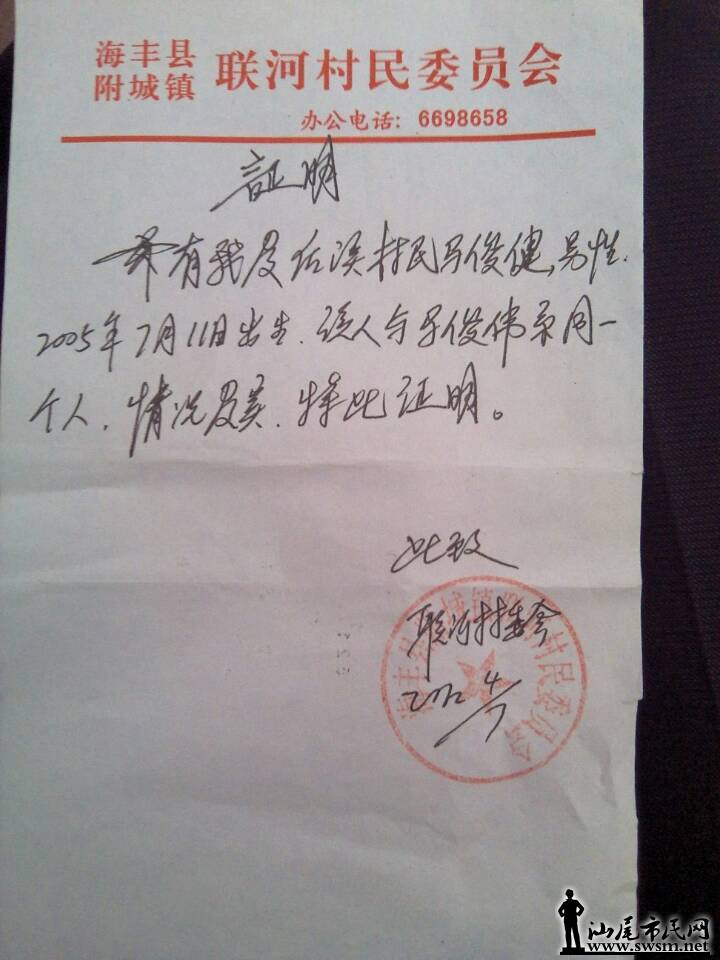 海丰县
附城镇 联河村民委员会
办公电话: 6698658
証明
兹有我及后溪村民马俊健、男性.
2005年7月11日出生. 该人与马俊伟系同一
个人. 情况及实. 特此证明。
此致
联河村委会
4/7
海丰县附城镇联河村民委员会
汕尾市民网
www.swsm.net